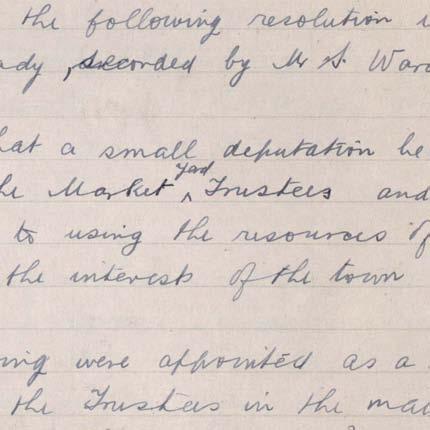 the following resolution
ady, seconded by Mr S. Ward
hat a small deputation be
he Market ^Yard Trustees and
to using the resources of
the interests of the town
ing were appointed as a
the Trustees in the